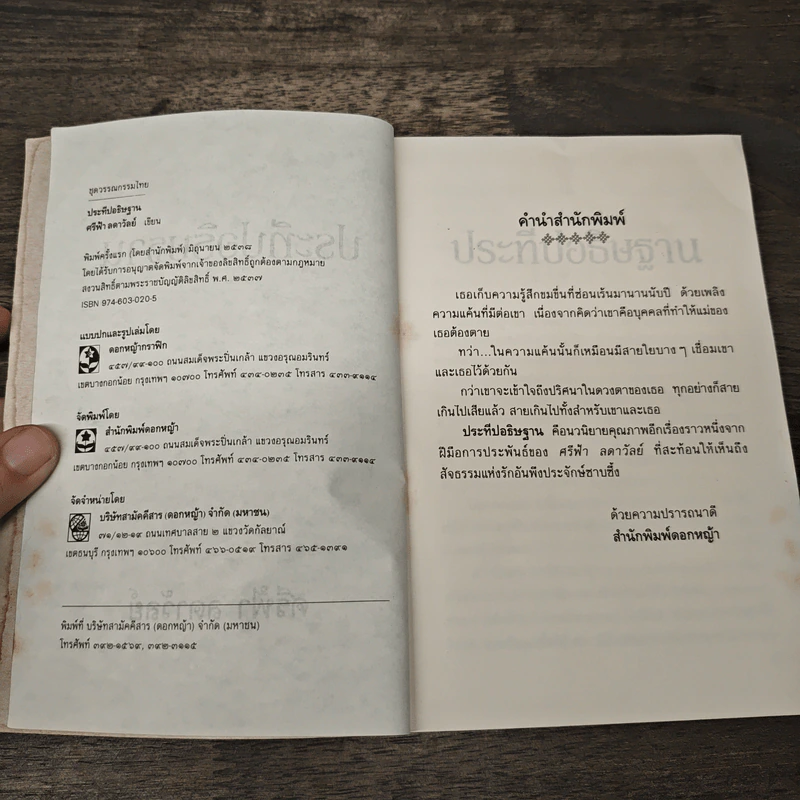 ชุดวรรณกรรมไทย
ประทีปอธิษฐาน
ศรีฟ้า ลดาวัลย์ เขียน
พิมพ์ครั้งแรก (โดยสำนักพิมพ์) มิถุนายน ๒๕๓๘
โดยได้รับการอนุญาตจัดพิมพ์จากเจ้าของลิขสิทธิ์ถูกต้องตามกฎหมาย
สงวนสิทธิ์ตามพระราชบัญญัติลิขสิทธิ์ พ.ศ. ๒๕๓๗
ISBN 974-603-020-5
แบบปกและรูปเล่มโดย
ดอกหญ้ากราฟิก
๔๕๗/๙๙-๑๐๐ ถนนสมเด็จพระปิ่นเกล้า แขวงอรุณอมรินทร์
เขตบางกอกน้อย กรุงเทพฯ ๑๐๗๐๐ โทรศัพท์ ๔๓๔-๐๒๓๕ โทรสาร ๔๓๓-๙๑๑๔
จัดพิมพ์โดย
สำนักพิมพ์ดอกหญ้า
๔๕๗/๙๙-๑๐๐ ถนนสมเด็จพระปิ่นเกล้า แขวงอรุณอมรินทร์
เขตบางกอกน้อย กรุงเทพฯ ๑๐๗๐๐ โทรศัพท์ ๔๓๔-๐๒๓๕ โทรสาร ๔๓๓-๙๑๑๔
จัดจำหน่ายโดย
บริษัทสามัคคีสาร (ดอกหญ้า) จำกัด (มหาชน)
๗๑/๑๒-๑๙ ถนนเทศบาลสาย ๒ แขวงวัดกัลยาณ์
เขตธนบุรี กรุงเทพฯ ๑๐๖๐๐ โทรศัพท์ ๔๖๖-๐๕๑๙ โทรสาร ๔๖๕-๑๓๙๑
พิมพ์ที่ บริษัทสามัคคีสาร (ดอกหญ้า) จำกัด (มหาชน)
โทรศัพท์ ๓๙๒-๑๕๖๙, ๓๙๒-๓๑๑๕
คำนำสำนักพิมพ์
ประทีปอธิษฐาน
เธอเก็บความรู้สึกขมขื่นที่ซ่อนเร้นมานานนับปี ด้วยเพลิง
ความแค้นที่มีต่อเขา เนื่องจากคิดว่าเขาคือบุคคลที่ทำให้แม่ของ
เธอต้องตาย
ทว่า...ในความแค้นนั้นก็เหมือนมีสายใยบาง ๆ เชื่อมเขา
และเธอไว้ด้วยกัน
กว่าเขาจะเข้าใจถึงปริศนาในดวงตาของเธอ ทุกอย่างก็สาย
เกินไปเสียแล้ว สายเกินไปทั้งสำหรับเขาและเธอ
ประทีปอธิษฐาน คือนวนิยายคุณภาพอีกเรื่องราวหนึ่งจาก
ฝีมือการประพันธ์ของ ศรีฟ้า ลดาวัลย์ ที่สะท้อนให้เห็นถึง
สัจธรรมแห่งรักอันพึงประจักษ์ซาบซึ้ง
ด้วยความปรารถนาดี
สำนักพิมพ์ดอกหญ้า